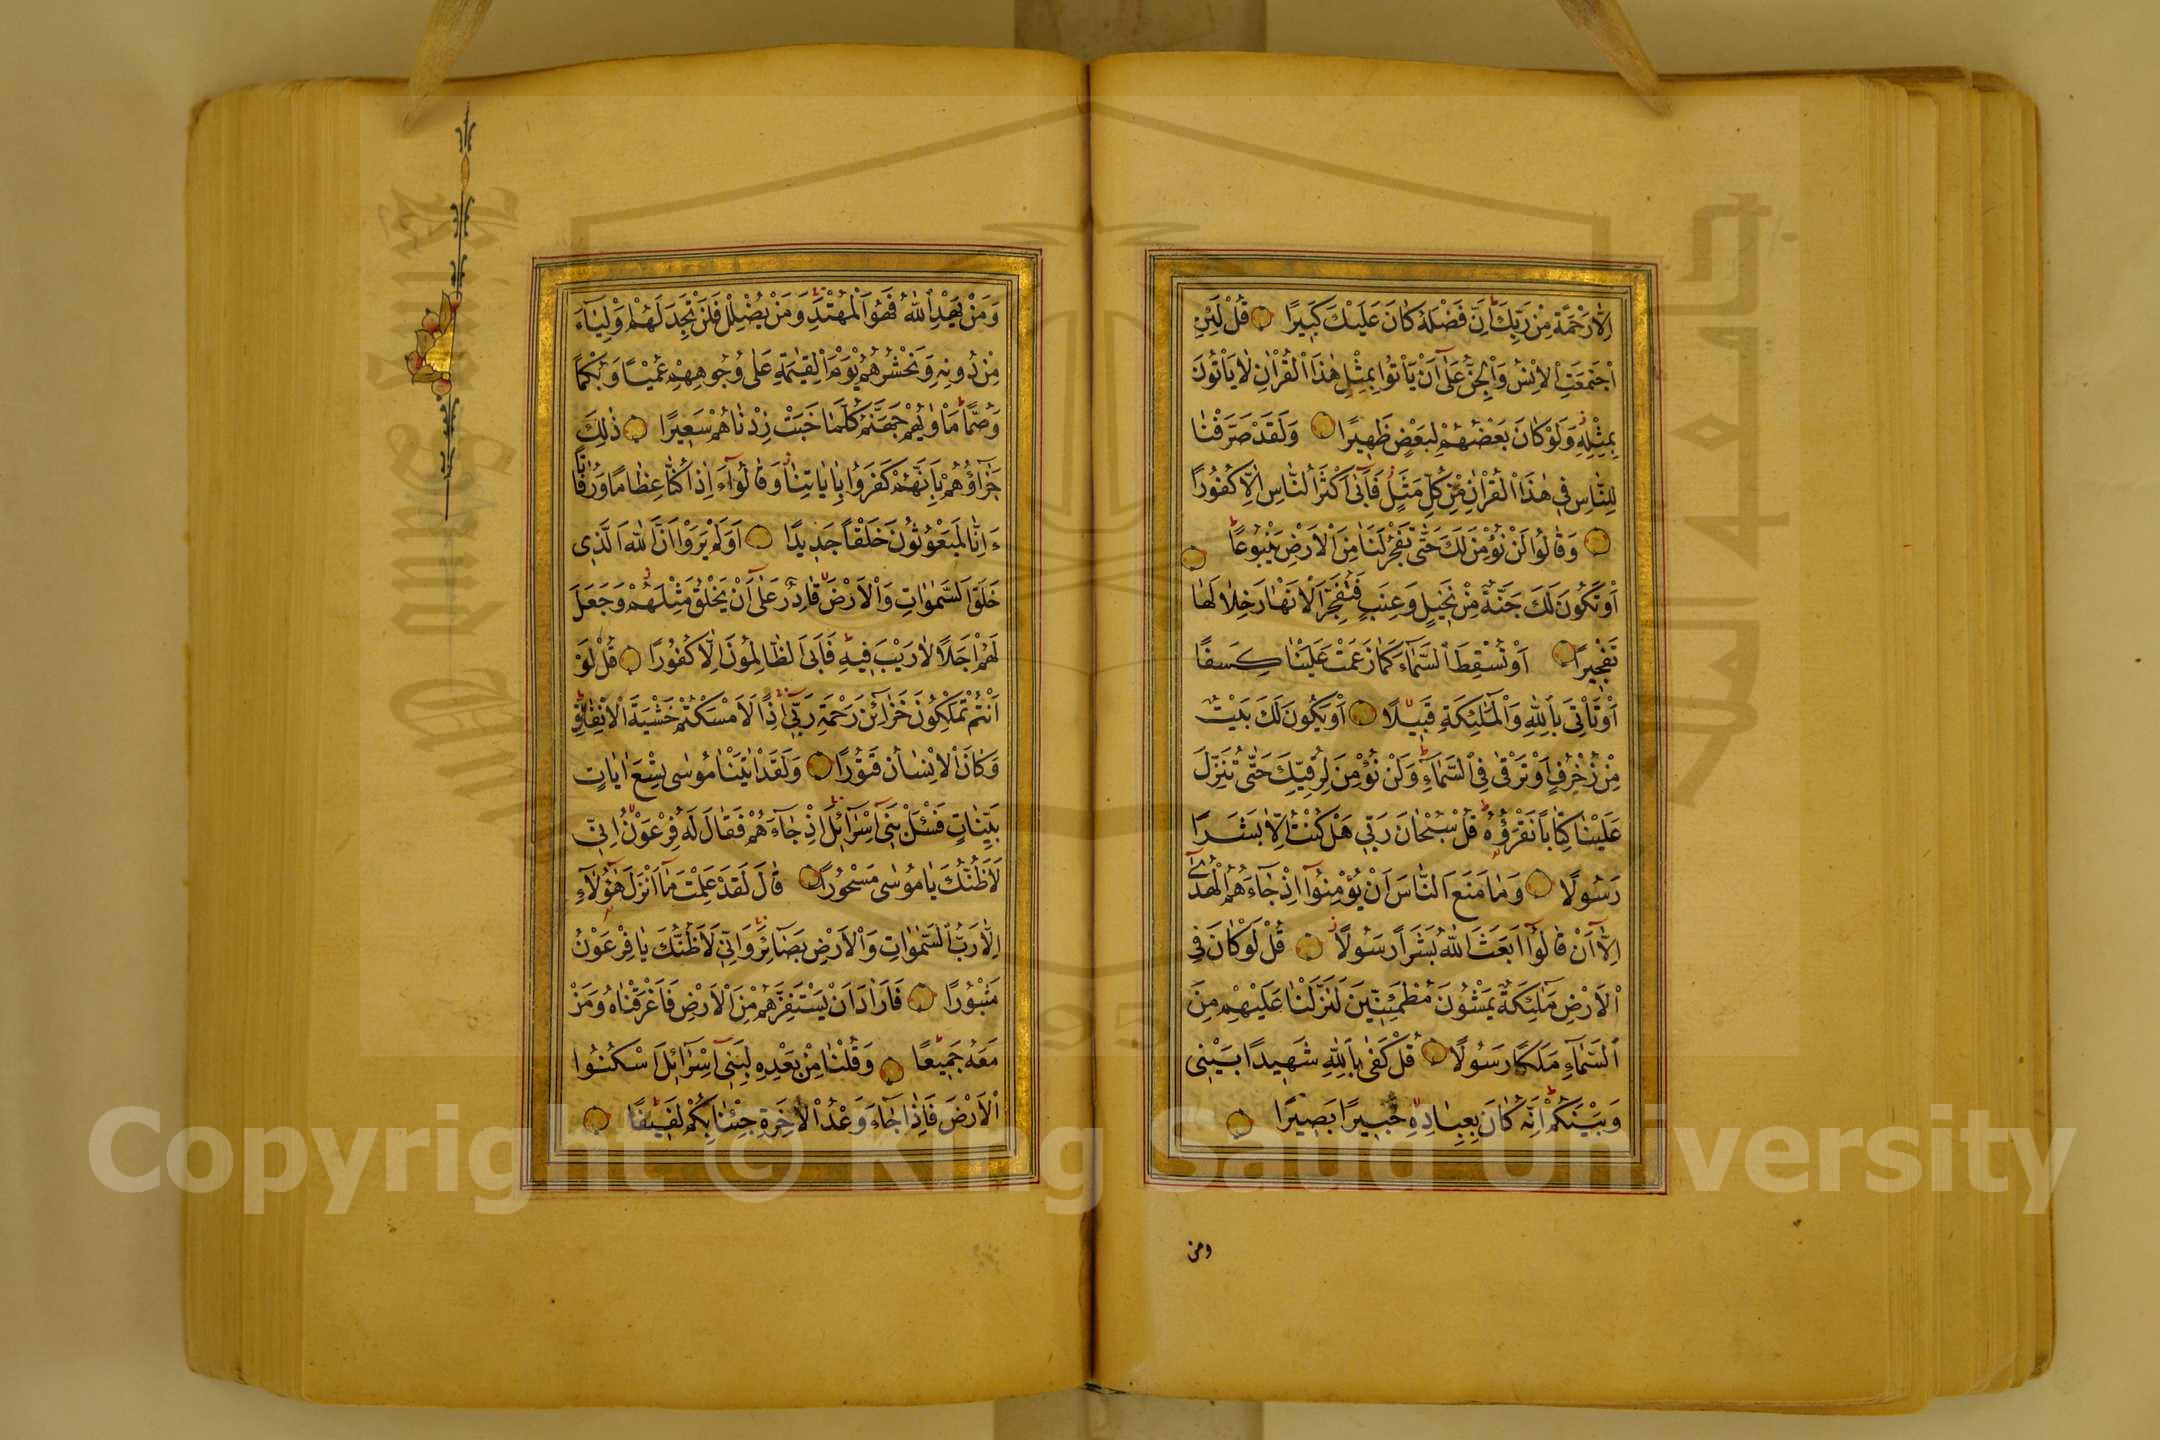 اِلَّا رَحْمَةً مِنْ رَبِّكَ اِنَّ فَضْلَهُ كَانَ عَلَيْكَ كَبِيرًا قُلْ لَئِنِ
اجْتَمَعَتِ الْاِنْسُ وَالْجِنُّ عَلٰٓى اَنْ يَأْتُوا بِمِثْلِ هٰذَا الْقُرْاٰنِ لَا يَأْتُونَ
بِمِثْلِهِ وَلَوْ كَانَ بَعْضُهُمْ لِبَعْضٍ ظَهِيرًا وَلَقَدْ صَرَّفْنَا
لِلنَّاسِ فِى هٰذَا الْقُرْاٰنِ مِنْ كُلِّ مَثَلٍ فَاَبٰٓى اَكْثَرُ النَّاسِ اِلَّا كُفُورًا
وَقَالُوا لَنْ نُؤْمِنَ لَكَ حَتّٰى تَفْجُرَ لَنَا مِنَ الْاَرْضِ يَنْبُوعًا
اَوْ تَكُونَ لَكَ جَنَّةٌ مِنْ نَخِيلٍ وَعِنَبٍ فَتُفَجِّرَ الْاَنْهَارَ خِلَالَهَا
تَفْجِيرًا اَوْ تُسْقِطَ السَّمَٓاءَ كَمَا زَعَمْتَ عَلَيْنَا كِسَفًا
اَوْ تَأْتِىَ بِاللّٰهِ وَالْمَلٰٓئِكَةِ قَبِيلًا اَوْ يَكُونَ لَكَ بَيْتٌ
مِنْ زُخْرُفٍ اَوْ تَرْقٰى فِى السَّمَٓاءِ وَلَنْ نُؤْمِنَ لِرُقِيِّكَ حَتّٰى تُنَزِّلَ
عَلَيْنَا كِتَابًا نَقْرَؤُهُ قُلْ سُبْحَانَ رَبِّى هَلْ كُنْتُ اِلَّا بَشَرًا
رَسُولًا وَمَا مَنَعَ النَّاسَ اَنْ يُؤْمِنُٓوا اِذْ جَٓاءَهُمُ الْهُدٰٓى
اِلَّٓا اَنْ قَالُٓوا اَبَعَثَ اللّٰهُ بَشَرًا رَسُولًا قُلْ لَوْ كَانَ فِى
الْاَرْضِ مَلٰٓئِكَةٌ يَمْشُونَ مُطْمَئِنِّينَ لَنَزَّلْنَا عَلَيْهِمْ مِنَ
السَّمَٓاءِ مَلَكًا رَسُولًا قُلْ كَفٰى بِاللّٰهِ شَهِيدًا بَيْنِى
وَبَيْنَكُمْ اِنَّهُ كَانَ بِعِبَادِهِ خَبِيرًا بَصِيرًا
ومن
وَمَنْ يَهْدِ اللّٰهُ فَهُوَ الْمُهْتَدِ وَمَنْ يُضْلِلْ فَلَنْ تَجِدَ لَهُمْ اَوْلِيَٓاءَ
مِنْ دُونِهِ وَنَحْشُرُهُمْ يَوْمَ الْقِيٰمَةِ عَلٰى وُجُوهِهِمْ عُمْيًا وَبُكْمًا
وَصُمًّا مَأْوٰيهُمْ جَهَنَّمُ كُلَّمَا خَبَتْ زِدْنَاهُمْ سَعِيرًا ذٰلِكَ
جَزَٓاؤُهُمْ بِاَنَّهُمْ كَفَرُوا بِاٰيَاتِنَا وَقَالُٓوا ءَاِذَا كُنَّا عِظَامًا وَرُفَاتًا
ءَاِنَّا لَمَبْعُوثُونَ خَلْقًا جَدِيدًا اَوَلَمْ يَرَوْا اَنَّ اللّٰهَ الَّذِى
خَلَقَ السَّمٰوَاتِ وَالْاَرْضَ قَادِرٌ عَلٰٓى اَنْ يَخْلُقَ مِثْلَهُمْ وَجَعَلَ
لَهُمْ اَجَلًا لَا رَيْبَ فِيهِ فَاَبَى الظَّالِمُونَ اِلَّا كُفُورًا قُلْ لَوْ
اَنْتُمْ تَمْلِكُونَ خَزَٓائِنَ رَحْمَةِ رَبِّٓى اِذًا لَاَمْسَكْتُمْ خَشْيَةَ الْاِنْفَاقِ
وَكَانَ الْاِنْسَانُ قَتُورًا وَلَقَدْ اٰتَيْنَا مُوسٰى تِسْعَ اٰيَاتٍ
بَيِّنَاتٍ فَسْـَٔلْ بَنِٓى اِسْرَٓائِلَ اِذْ جَٓاءَهُمْ فَقَالَ لَهُ فِرْعَوْنُ اِنِّى
لَاَظُنُّكَ يَا مُوسٰى مَسْحُورًا قَالَ لَقَدْ عَلِمْتَ مَٓا اَنْزَلَ هٰٓؤُلَٓاءِ
اِلَّا رَبُّ السَّمٰوَاتِ وَالْاَرْضِ بَصَٓائِرَ وَاِنِّى لَاَظُنُّكَ يَا فِرْعَوْنُ
مَثْبُورًا فَاَرَادَ اَنْ يَسْتَفِزَّهُمْ مِنَ الْاَرْضِ فَاَغْرَقْنَاهُ وَمَنْ
مَعَهُ جَمِيعًا وَقُلْنَا مِنْ بَعْدِهِ لِبَنِٓى اِسْرَٓائِلَ اسْكُنُوا
الْاَرْضَ فَاِذَا جَٓاءَ وَعْدُ الْاٰخِرَةِ جِئْنَا بِكُمْ لَفِيفًا
Copyright © King Saud University
King Saud University
جامعة الملك سعود
1957